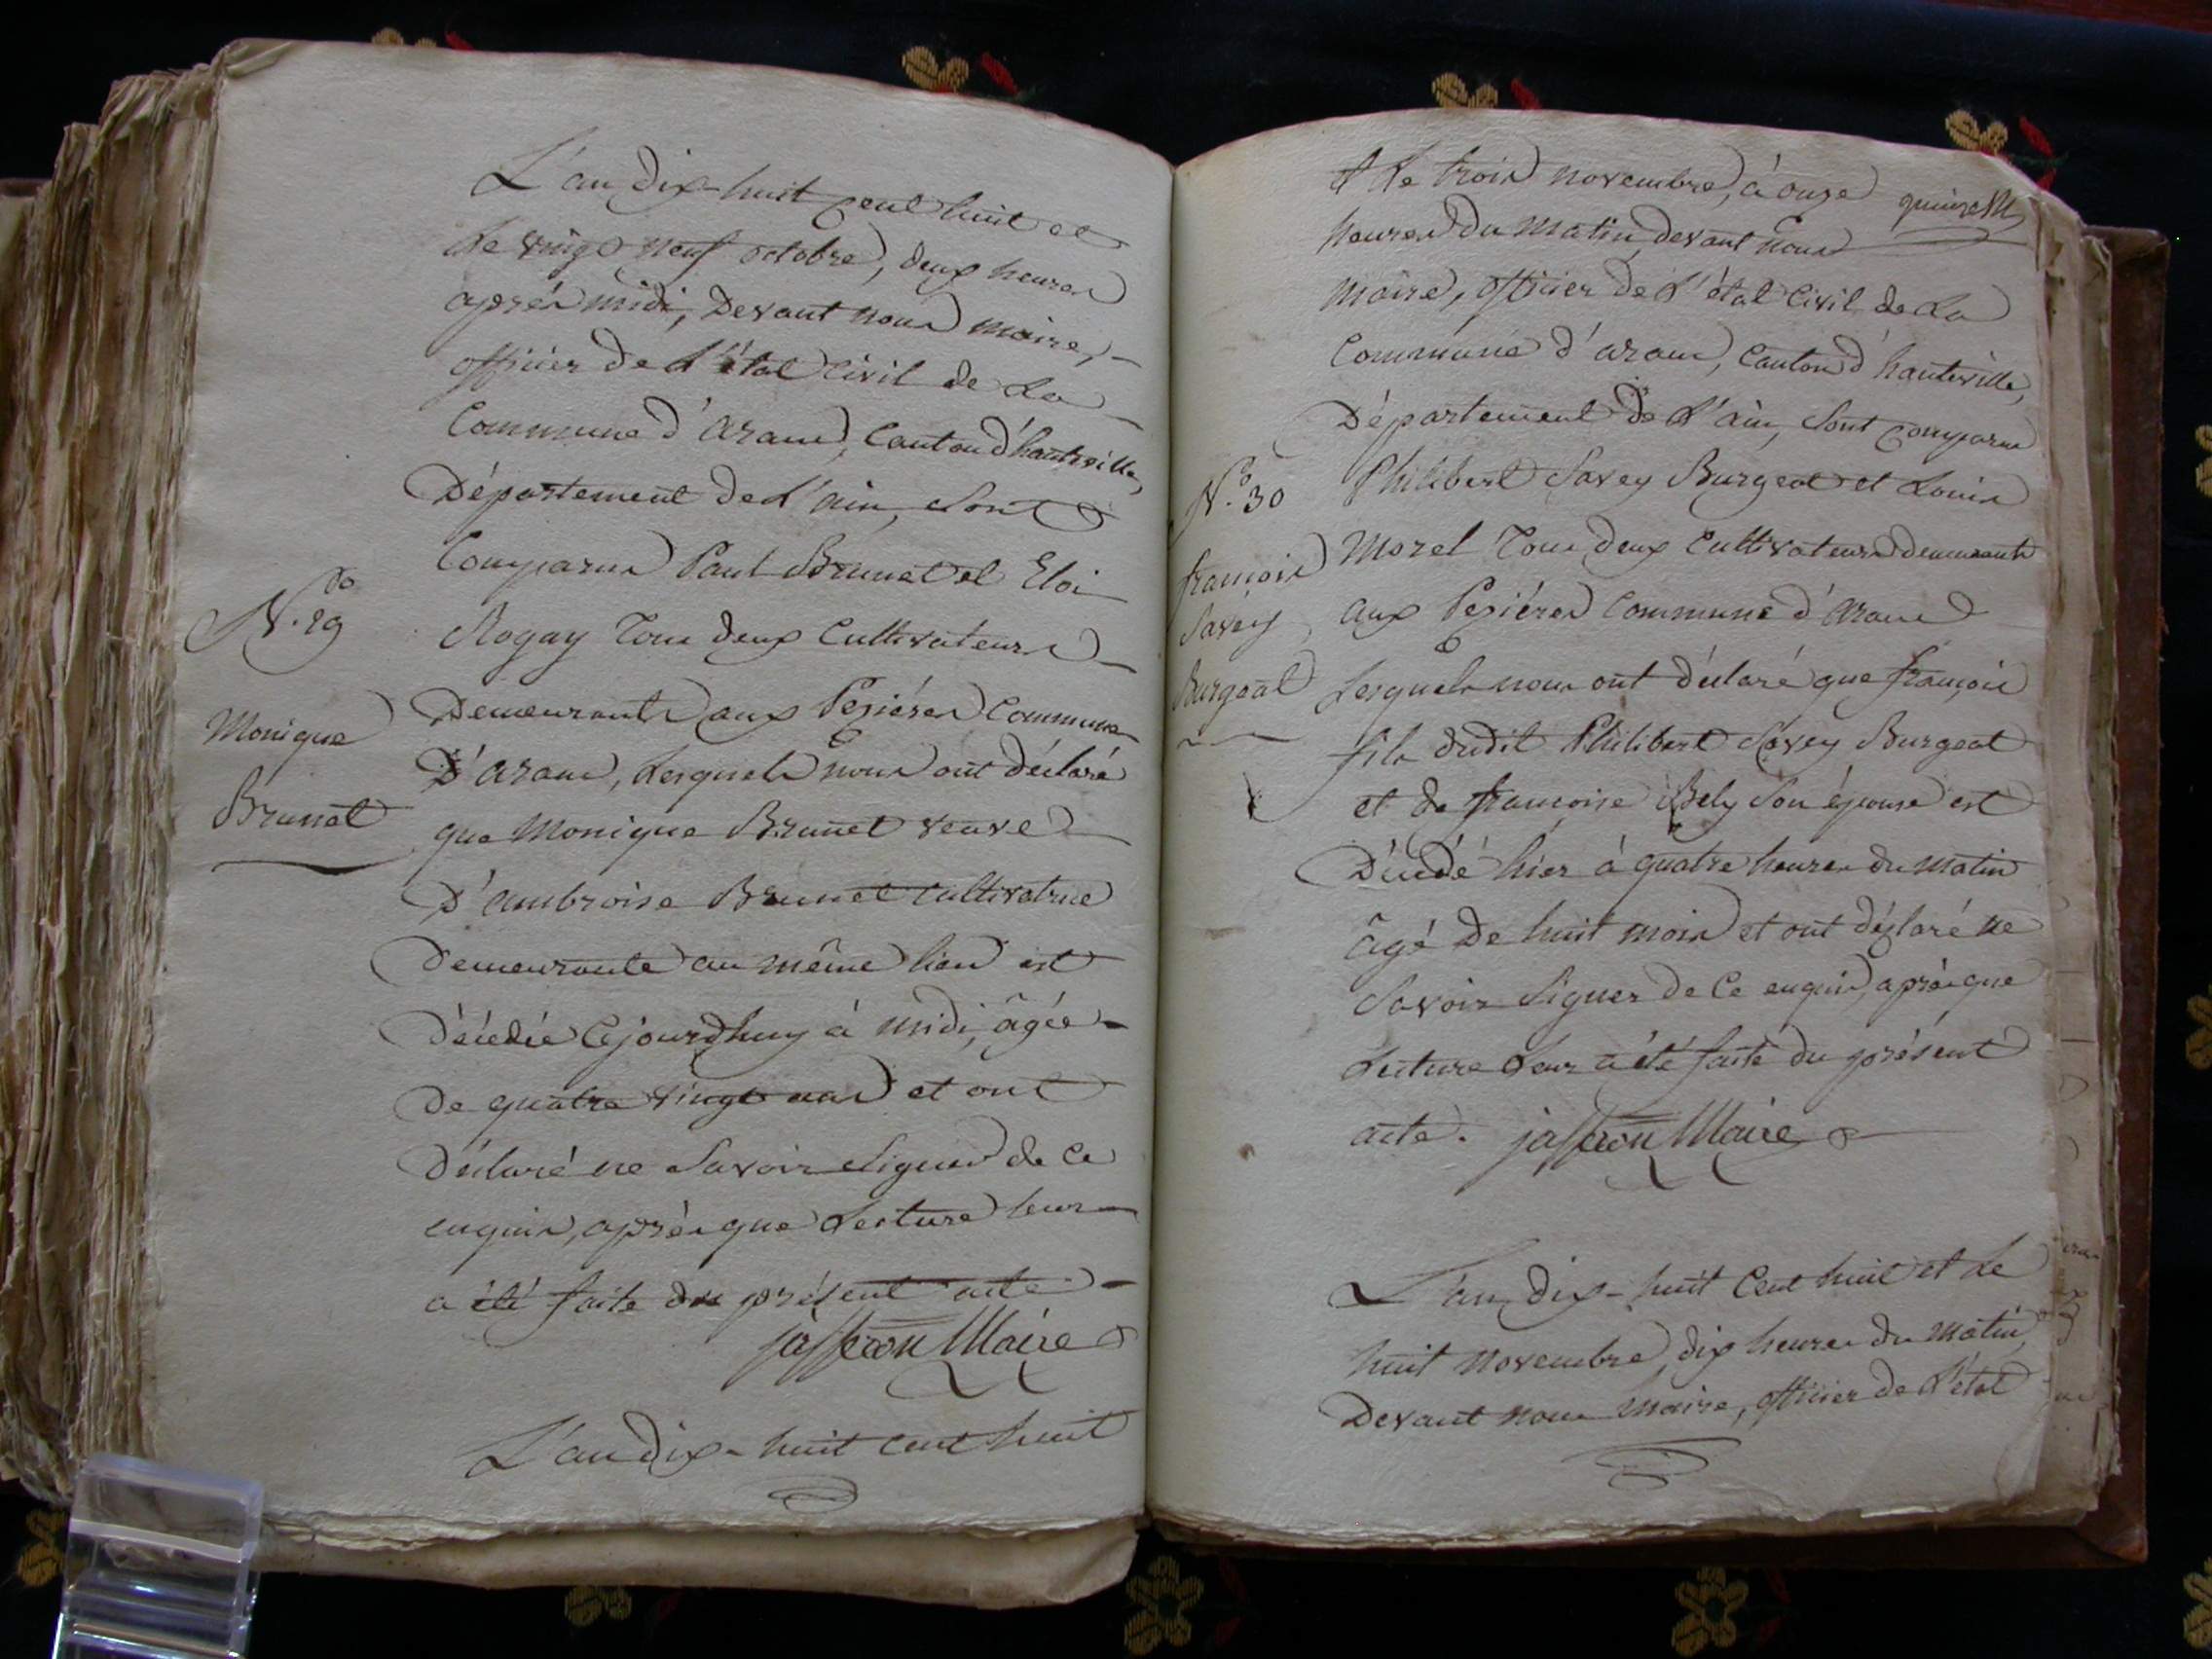 L'an dix-huit cent huit et
Le vingt neuf octobre, deux heures
après midi, Devant nous maire,
officier de L'état Civil de La
Commune d'aranc, Canton d'hauteville,
Département de L'ain, Sont
Comparus Paul Brunet et Eloi
N.º 29
Rogay Tous deux Cultivateurs
Demeurants aux Pesières Commune
Monique
Brunet
D'aranc, Lesquels nous ont déclaré
que Monique Brunet veuve
D'ambroise Brunet cultivatrice
demeurante au même lieu est
décédée Cejourdhuy à midi, âgée
de quatre vingt ans et ont
Déclaré ne Savoir Signer de ce
enquis, après que Lecture leur
a été faite du présent acte
jasseron Maire
L'an dix-huit cent huit
et Le trois novembre, à onze
heures du matin, devant nous
maire, officier de L'état Civil de La
Commune d'aranc, Canton d'hauteville,
Département de L'ain, Sont Comparus
N.º 30
Philibert Savey Burgeat et Louis
françois
Savey
Burgeat
Morel Tous deux Cultivateurs demeurants
aux Pesières Commune d'aranc
Lesquels nous ont déclaré que françois
fils dudit Philibert Savey Burgeat
et de françoise Bely Son épouse est
Décédé hier à quatre heures du matin
âgé de huit mois et ont déclaré ne
Savoir Signer de Ce enquis, après que
Lecture Leur a été faite du présent
acte. jasseron Maire
L'an dix-huit Cent huit et Le
huit novembre, dix heures du matin,
Devant nous maire, officier de L'état